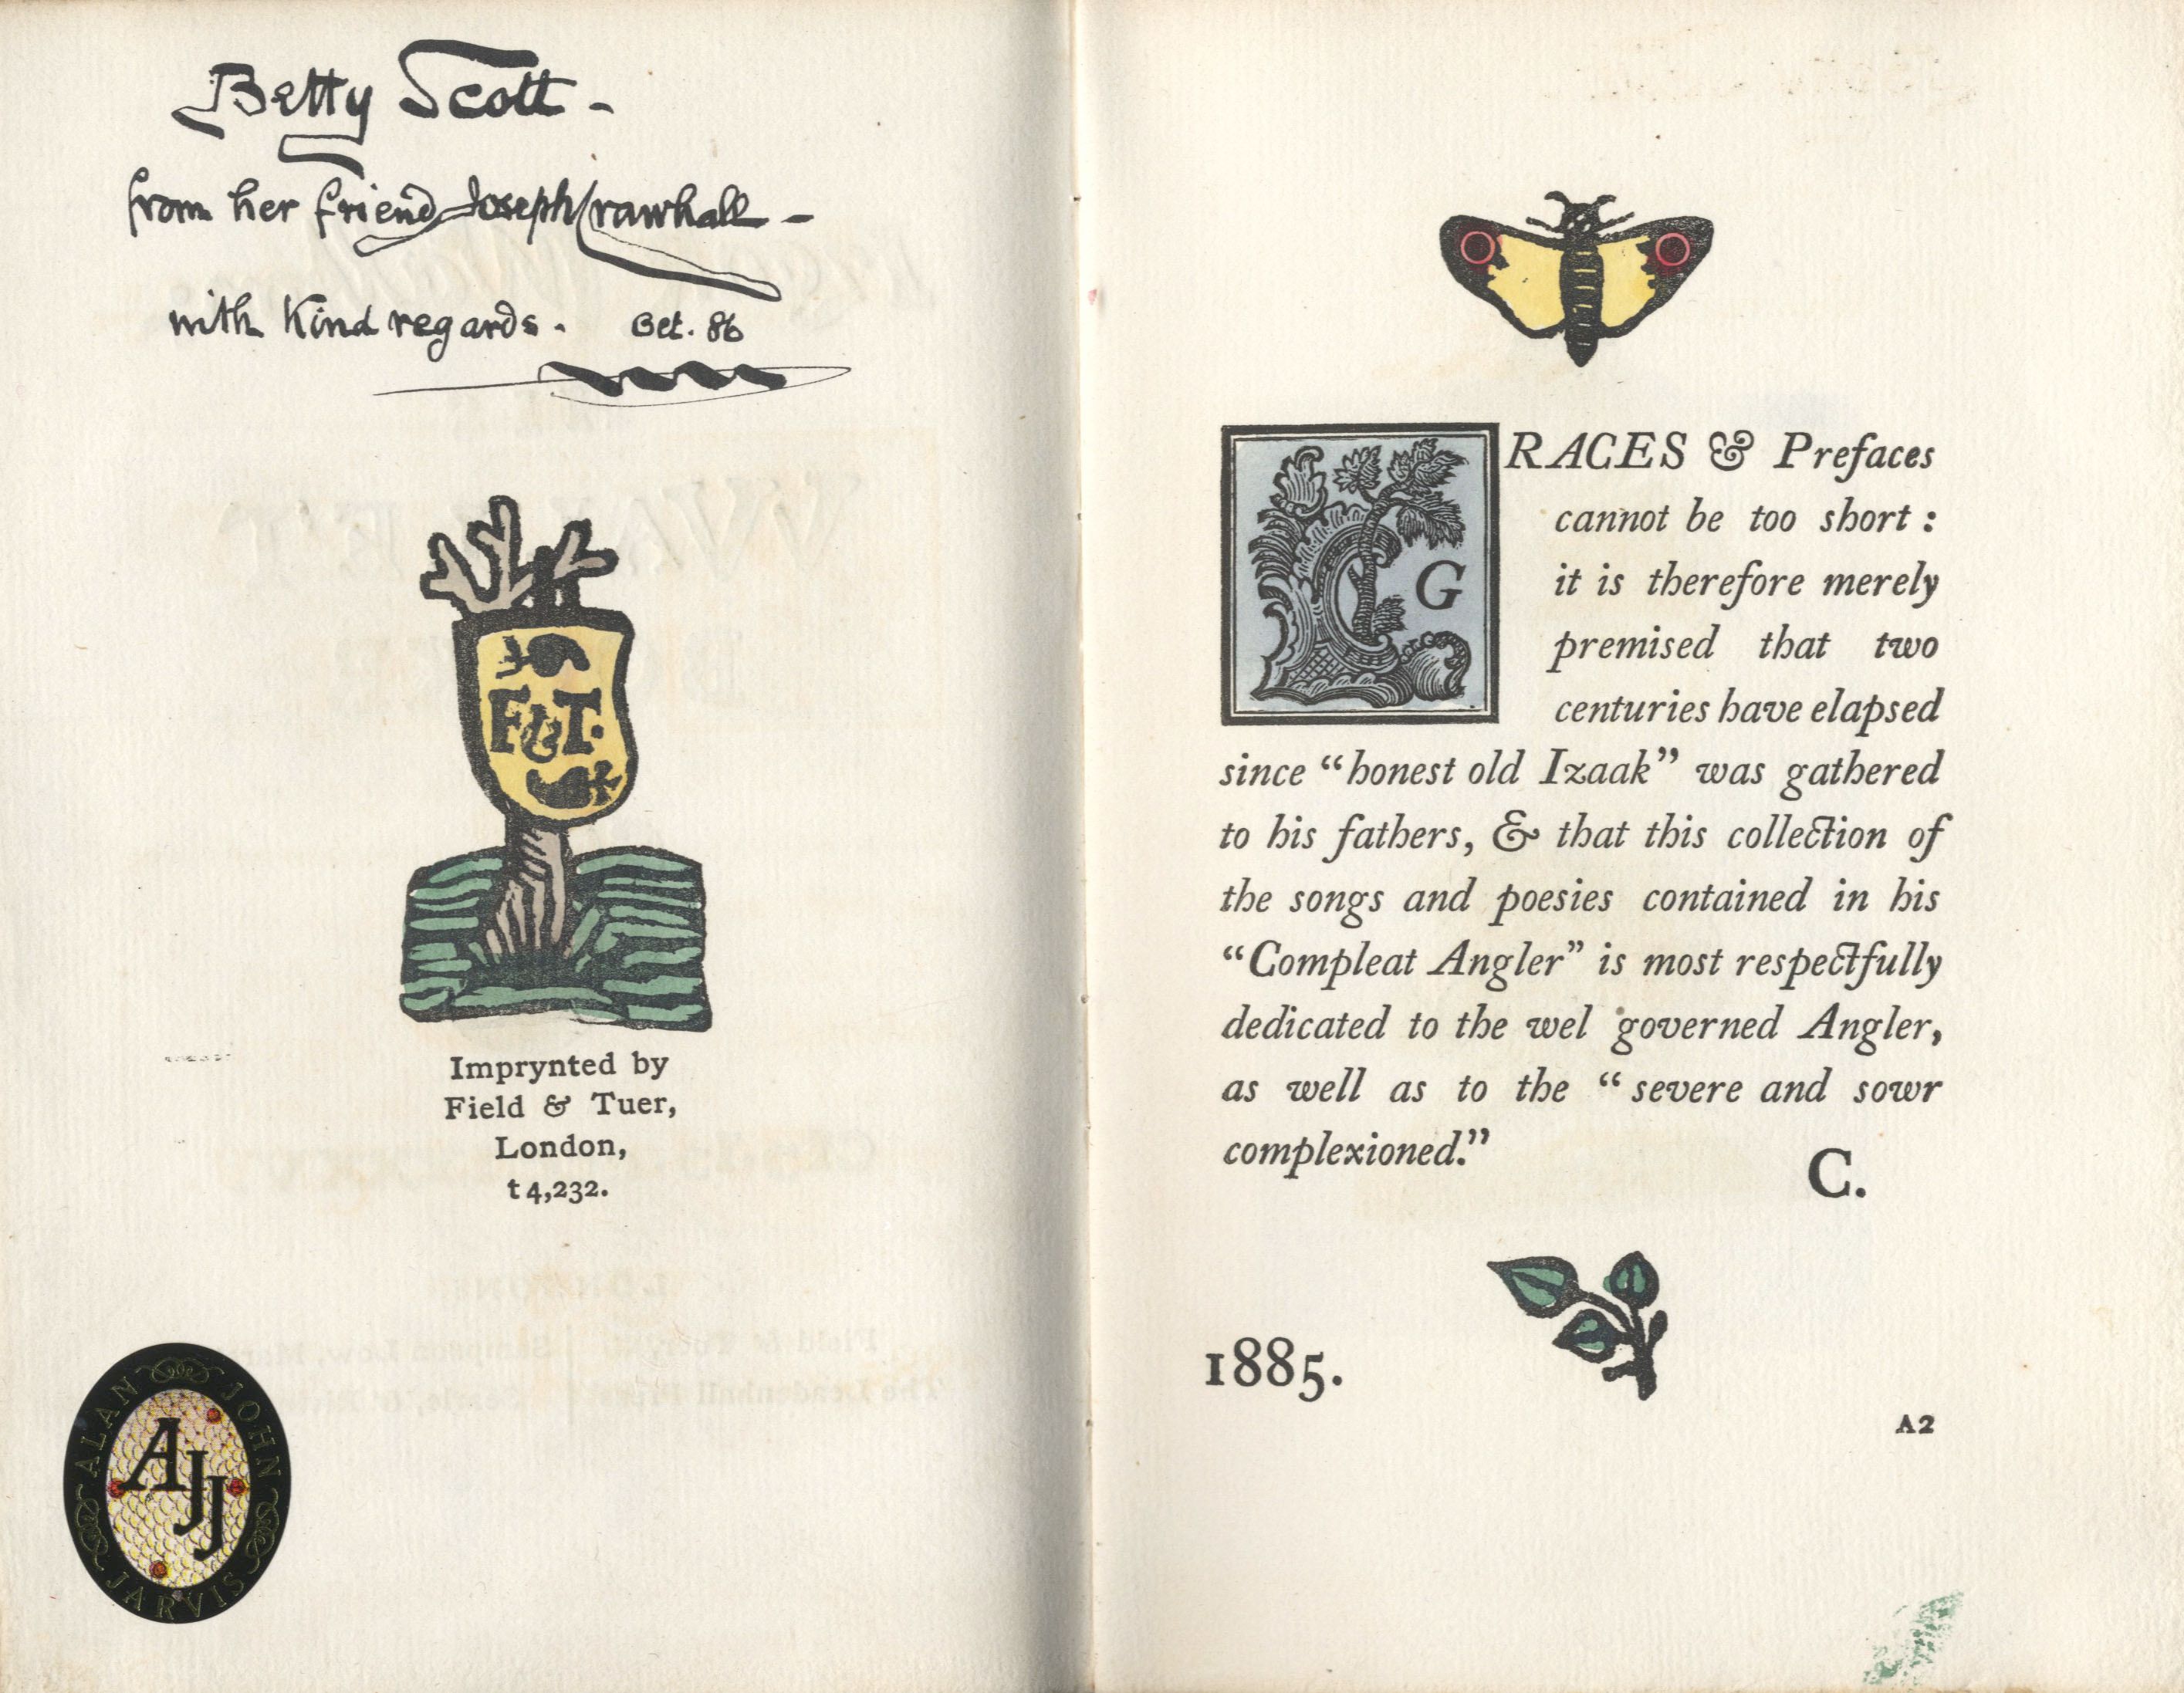 Betty Scott -
from her friend Joseph Crawhall -
with Kind regards. Oct. 86
F&T.
Imprynted by
Field & Tuer,
London,
t 4,232.
ALAN JOHN JARVIS
AJJ
GRACES & Prefaces
cannot be too short :
it is therefore merely
premised that two
centuries have elapsed
since “honest old Izaak” was gathered
to his fathers, & that this collection of
the songs and poesies contained in his
“Compleat Angler” is most respectfully
dedicated to the wel governed Angler,
as well as to the “ severe and sowr
complexioned.”
C.
1885.
A2